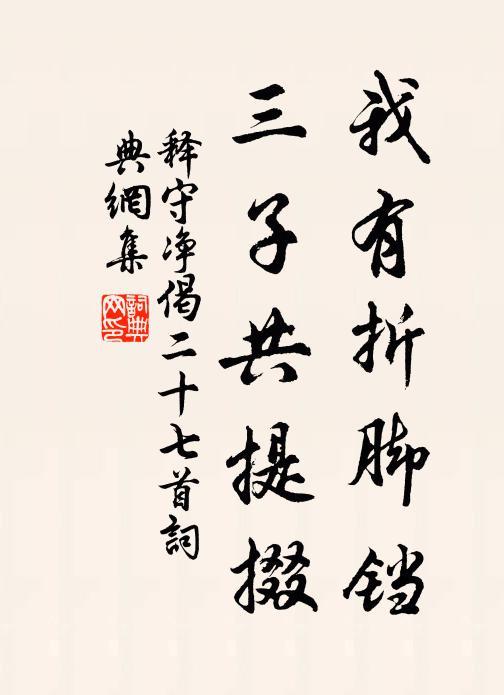 我有折脚铛
三子共提掇
释守净偈二十七首詞
典網集
詞典网印